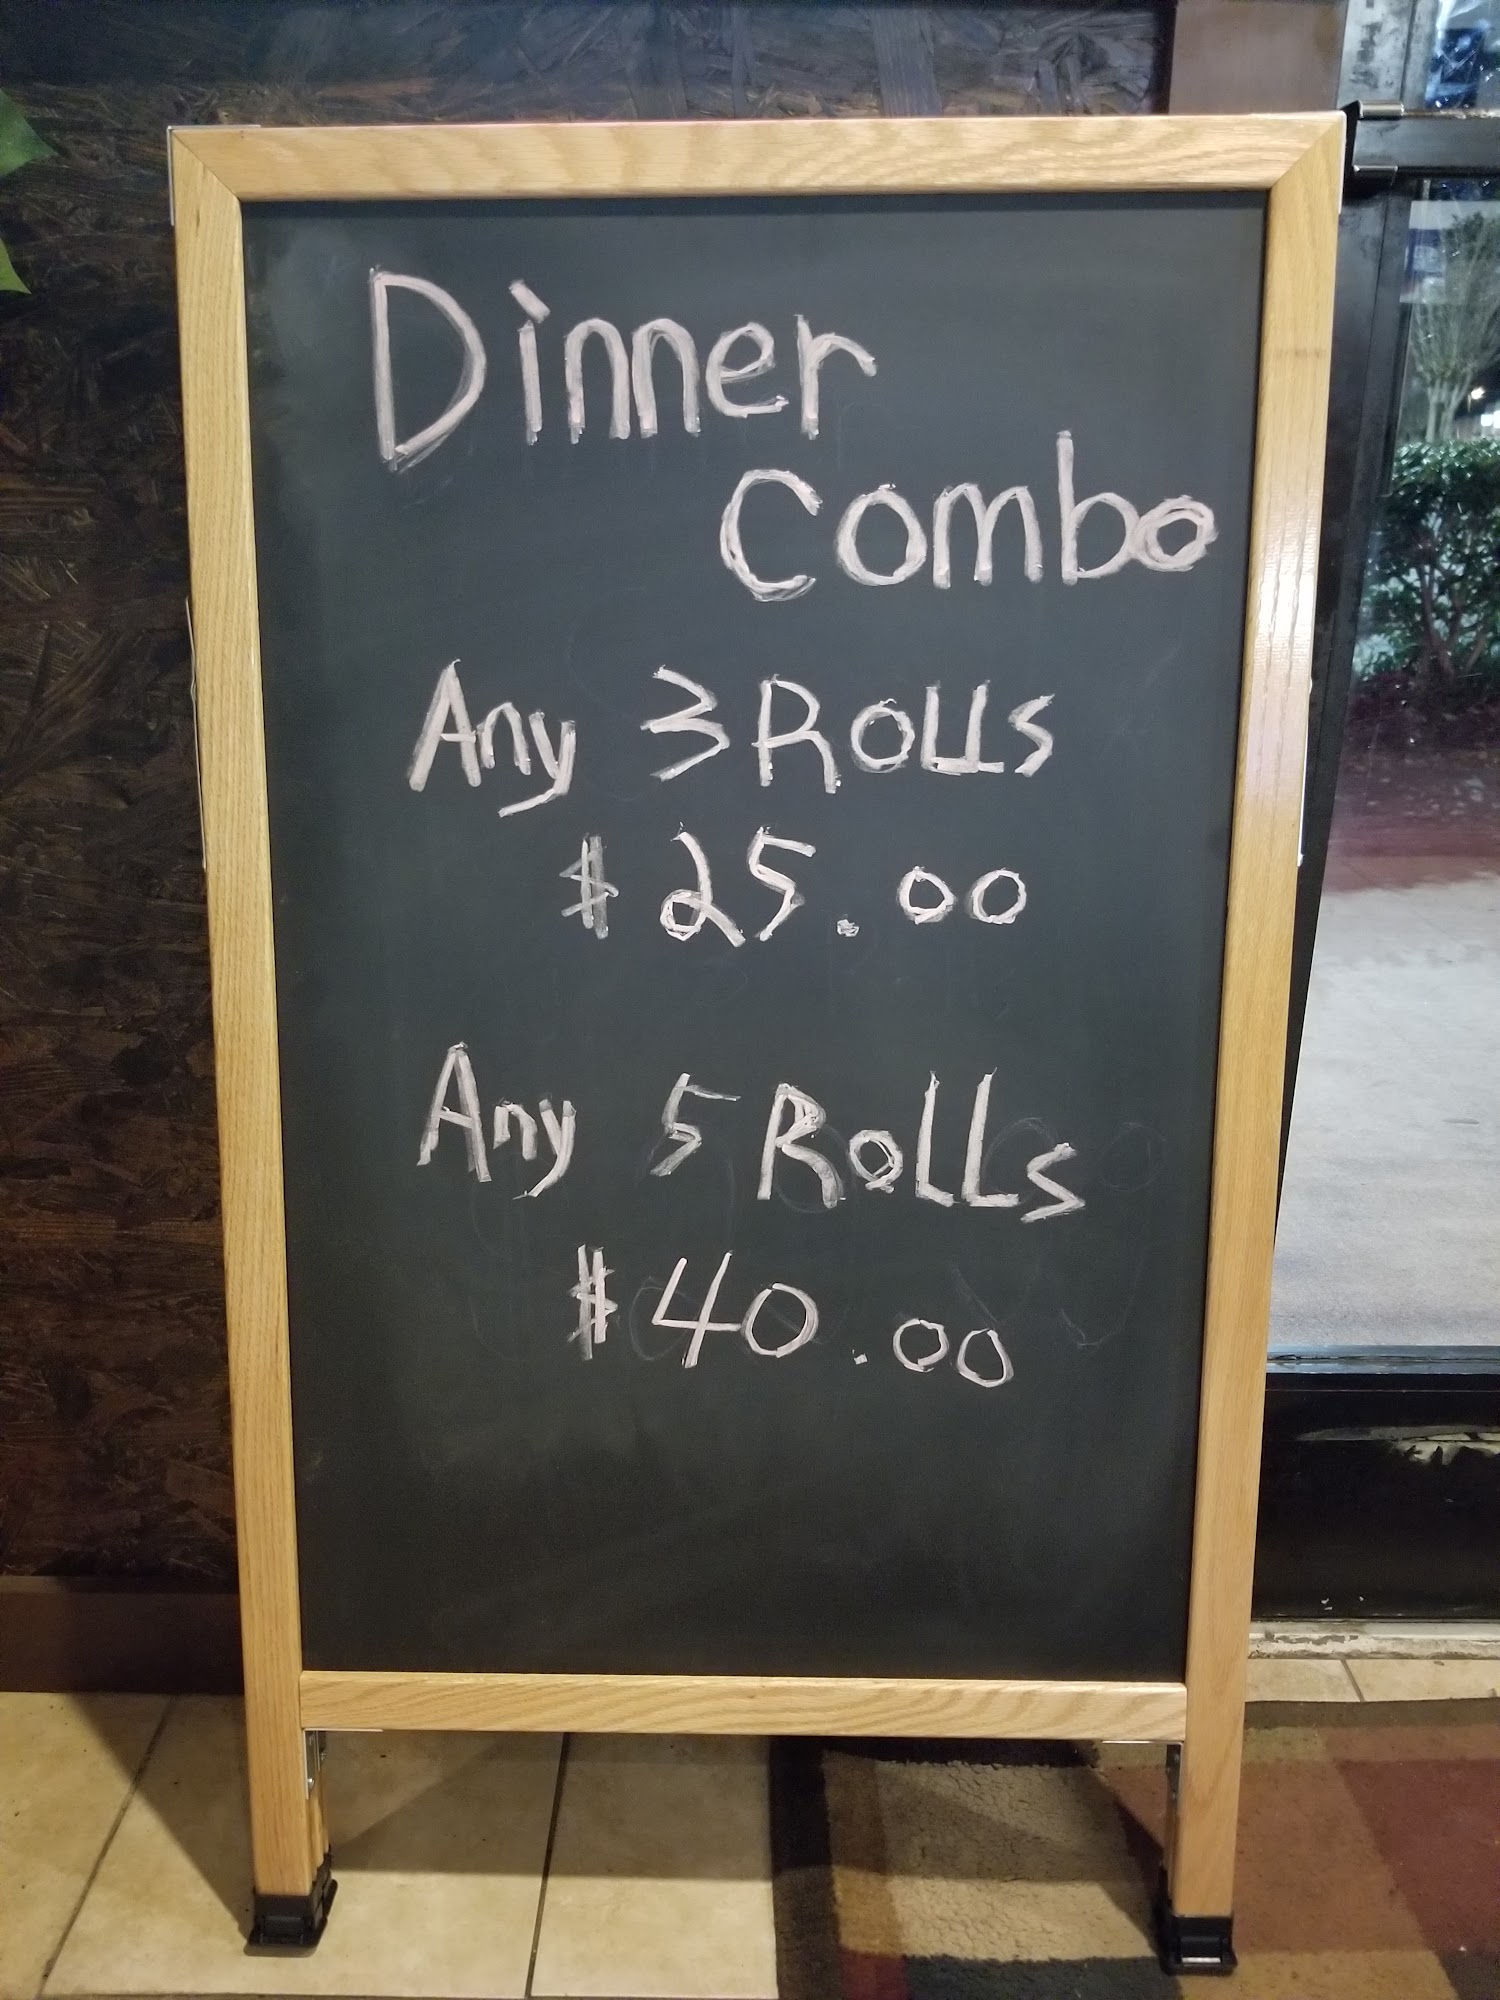 Dinner
Combo
Any 3 Rolls
$25.00
Any 5 Rolls
$40.00